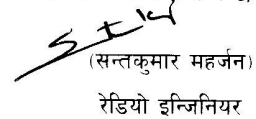 (सन्तकुमार महर्जन)
रेडियो इन्जिनियर